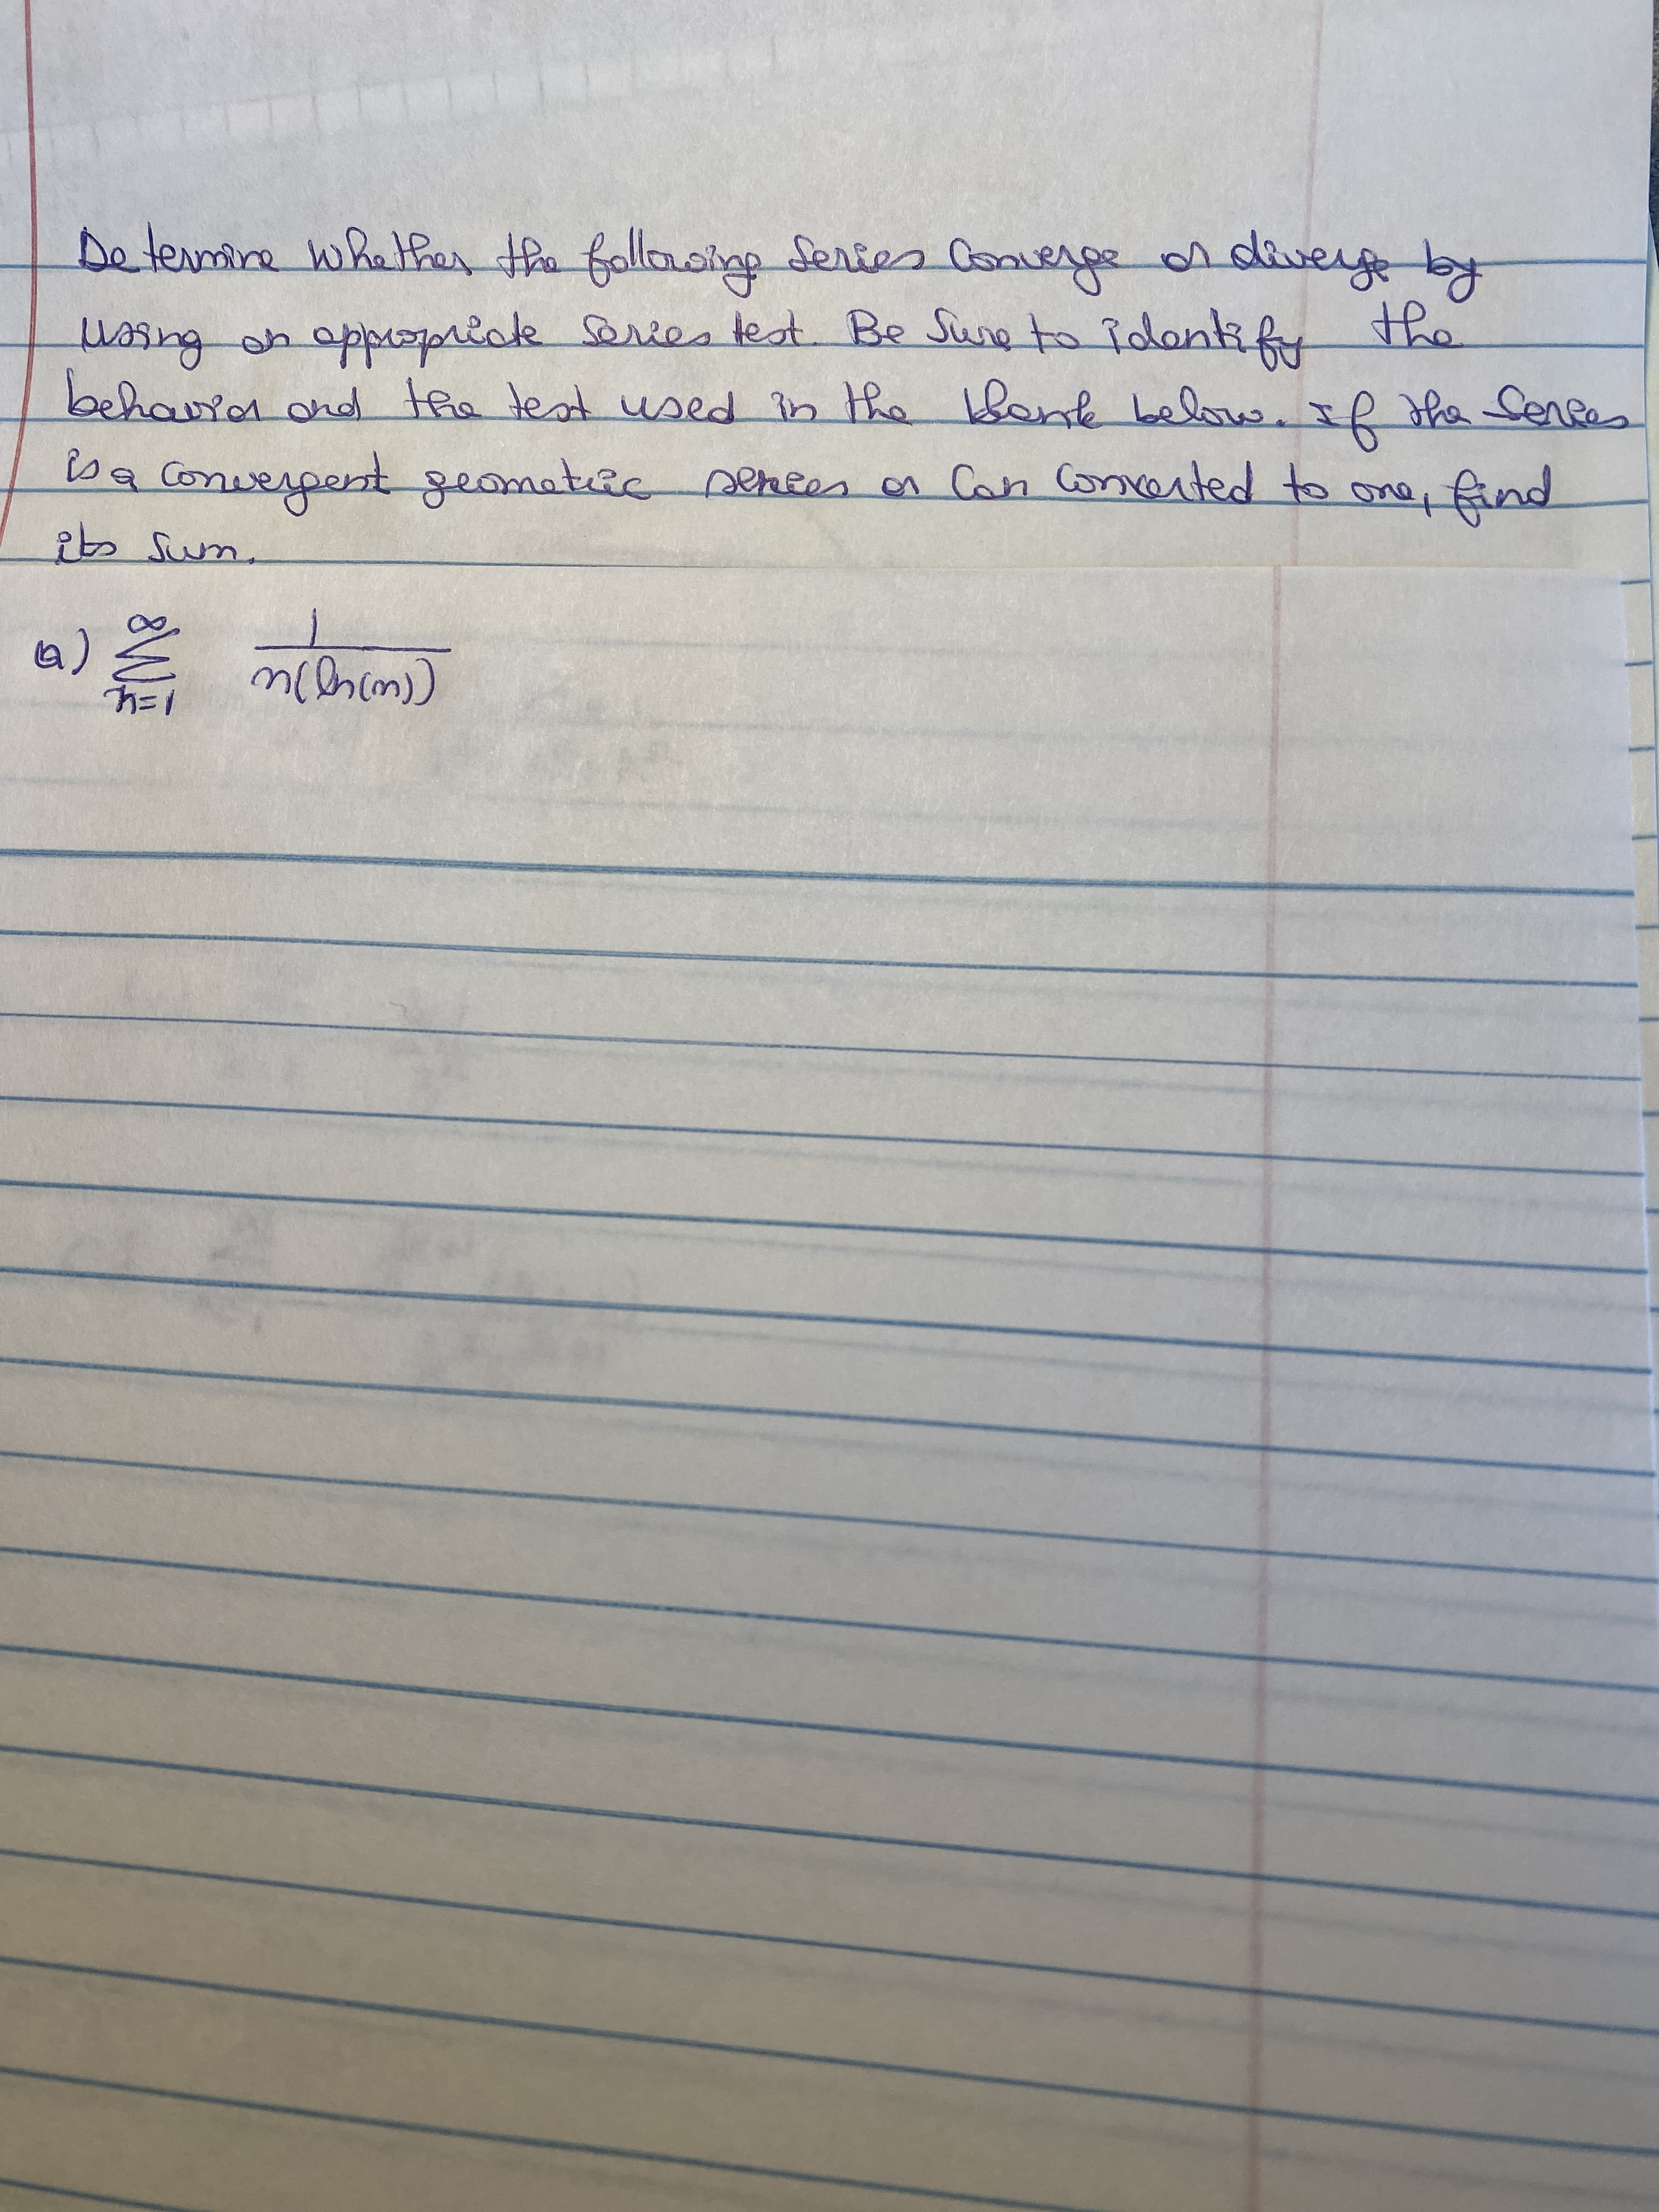 Determine whether the following series converge or diverge by
using an appropriate series test. Be sure to identify the
behavior and the test used in the blank below. If the series
is a convergent geometric series or can converted to one, find
its sum.
a) ∞ Σ n=1 1/n(ln(n))